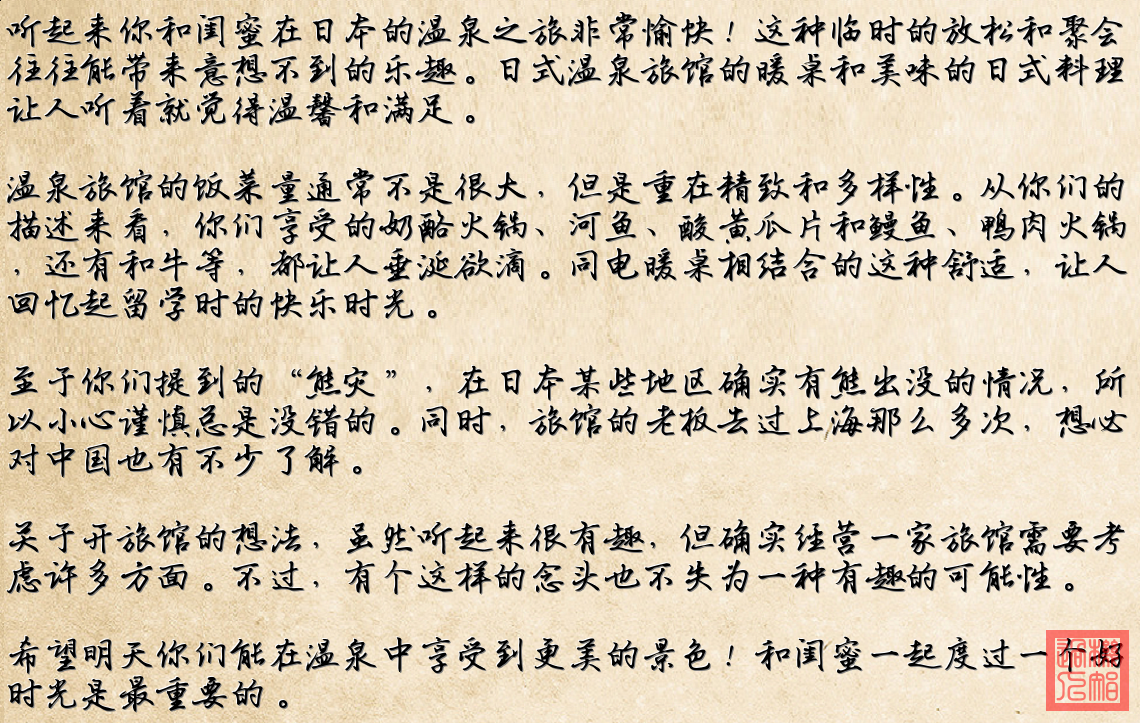 听起来你和闺蜜在日本的温泉之旅非常愉快！这种临时的放松和聚会
往往能带来意想不到的乐趣。日式温泉旅馆的暖桌和美味的日式料理
让人听着就觉得温馨和满足。
温泉旅馆的饭菜量通常不是很大，但是重在精致和多样性。从你们的
描述来看，你们享受的奶酪火锅、河鱼、酸黄瓜片和鳗鱼、鸭肉火锅
，还有和牛等，都让人垂涎欲滴。同电暖桌相结合的这种舒适，让人
回忆起留学时的快乐时光。
至于你们提到的“熊灾”，在日本某些地区确实有熊出没的情况，所
以小心谨慎总是没错的。同时，旅馆的老板去过上海那么多次，想必
对中国也有不少了解。
关于开旅馆的想法，虽然听起来很有趣，但确实经营一家旅馆需要考
虑许多方面。不过，有个这样的念头也不失为一种有趣的可能性。
希望明天你们能在温泉中享受到更美的景色！和闺蜜一起度过一个好
时光是最重要的。